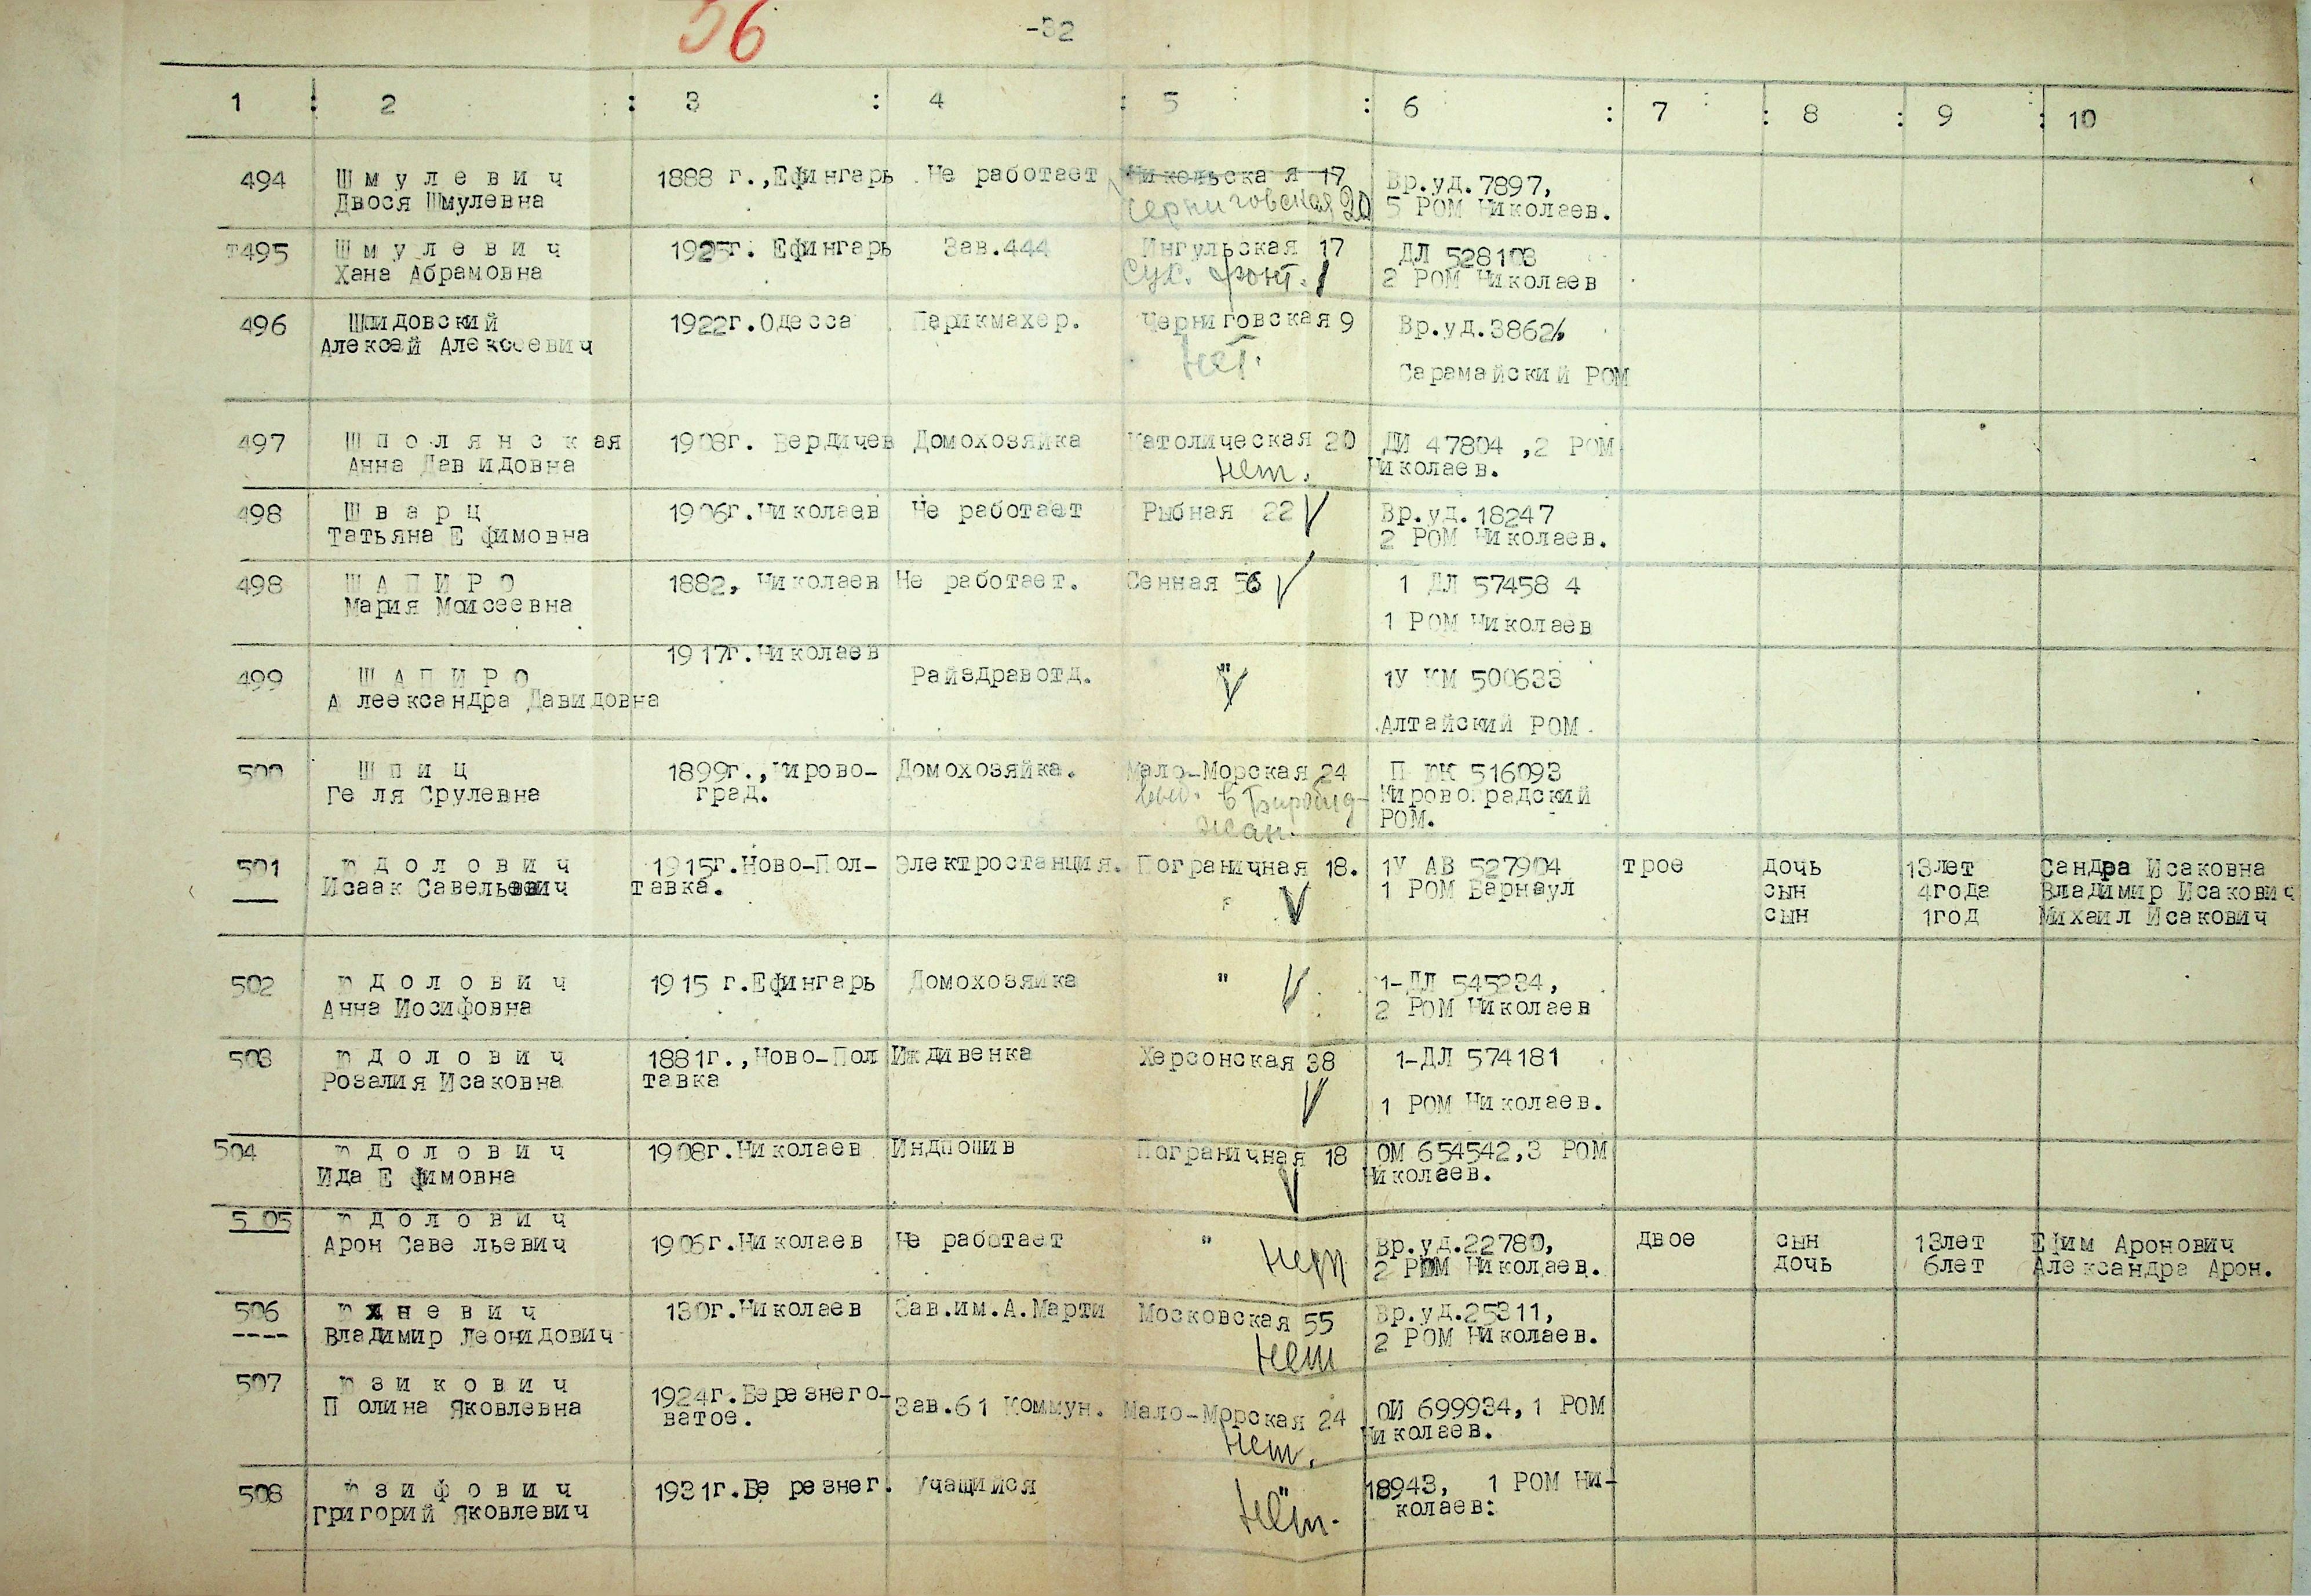 56
-32
1 : 2 : 3 : 4 : 5 : 6 : 7 : 8 : 9 : 10
494 Шмулевич 1888 г.,Ефингарь Не работает Никольская 17 Вр.уд.7897,
Двося Шмулевна Черниговская 20 5 РОМ Николаев.
т495 Шмулевич 1925г. Ефингарь Зав.444 Ингульская 17 ДЛ 528103
Хана Абрамовна Сух. фонт. 1 2 РОМ Николаев
496 Шидовский 1922г.Одесса Парикмахер. Черниговская 9 Вр.уд.3862
Алексей Алексеевич нет. Сарамайский РОМ
497 Шполянская 1908г. Бердичев Домохозяйка Католическая 20 ДИ 47804 ,2 РОМ
Анна Давидовна нет. Николаев.
498 Шварц 1906г.Николаев Не работает Рыбная 22 V Вр.уд.18247
Татьяна Ефимовна 2 РОМ Николаев.
498 ШАПИРО 1882, Николаев Не работает. Сенная 56 V 1 ДЛ 57458 4
Мария Моисеевна 1 РОМ Николаев
1917г.Николаев
499 ШАПИРО Райздравотд. " V 1У КМ 500633
Алеександра Давидовна Алтайский РОМ
500 Шпиц 1899г.,Кирово- Домохозяйка. Мало-Морская 24 П ЮК 516093
Геля Срулевна град. выб. в Биробид- Кировоградский
жан. РОМ.
501 Юдолович 1915г.Ново-Пол- Электростанция. Пограничная 18. 1У АВ 527904 трое дочь 13лет Сандра Исаковна
Исаак Савельевич тавка. V 1 РОМ Барнаул сын 4года Владимир Исакович
сын 1год Михаил Исакович
502 Юдолович 1915 г.Ефингарь Домохозяйка " V 1-ДЛ 545234,
Анна Иосифовна 2 РОМ Николаев
503 Юдолович 1881г.,Ново-Пол Иждивенка Херсонская 38 1-ДЛ 574181
Розалия Исаковна тавка V 1 РОМ Николаев.
504 Юдолович 1908г.Николаев Индпошив Пограничная 18 ОМ 654542,3 РОМ
Ида Ефимовна V Николаев.
505 Юдолович
Арон Савельевич 1906г.Николаев Не работает " нет Вр.уд.22780, двое сын 13лет Ефим Аронович
2 РОМ Николаев. дочь 6лет Александра Арон.
506 Юхневич 130г.Николаев Зав.им.А.Марти Московская 55 Вр.уд.25311,
---- Владимир Леонидович нет 2 РОМ Николаев.
507 Юзикович 1924г.Березнего- Зав.61 Коммун. Мало-Морская 24 ОИ 699934,1 РОМ
Полина Яковлевна ватое. нет. Николаев.
508 Юзифович 1931г.Березнег. Учащийся " 18943, 1 РОМ Ни-
Григорий Яковлевич нет. колаев: